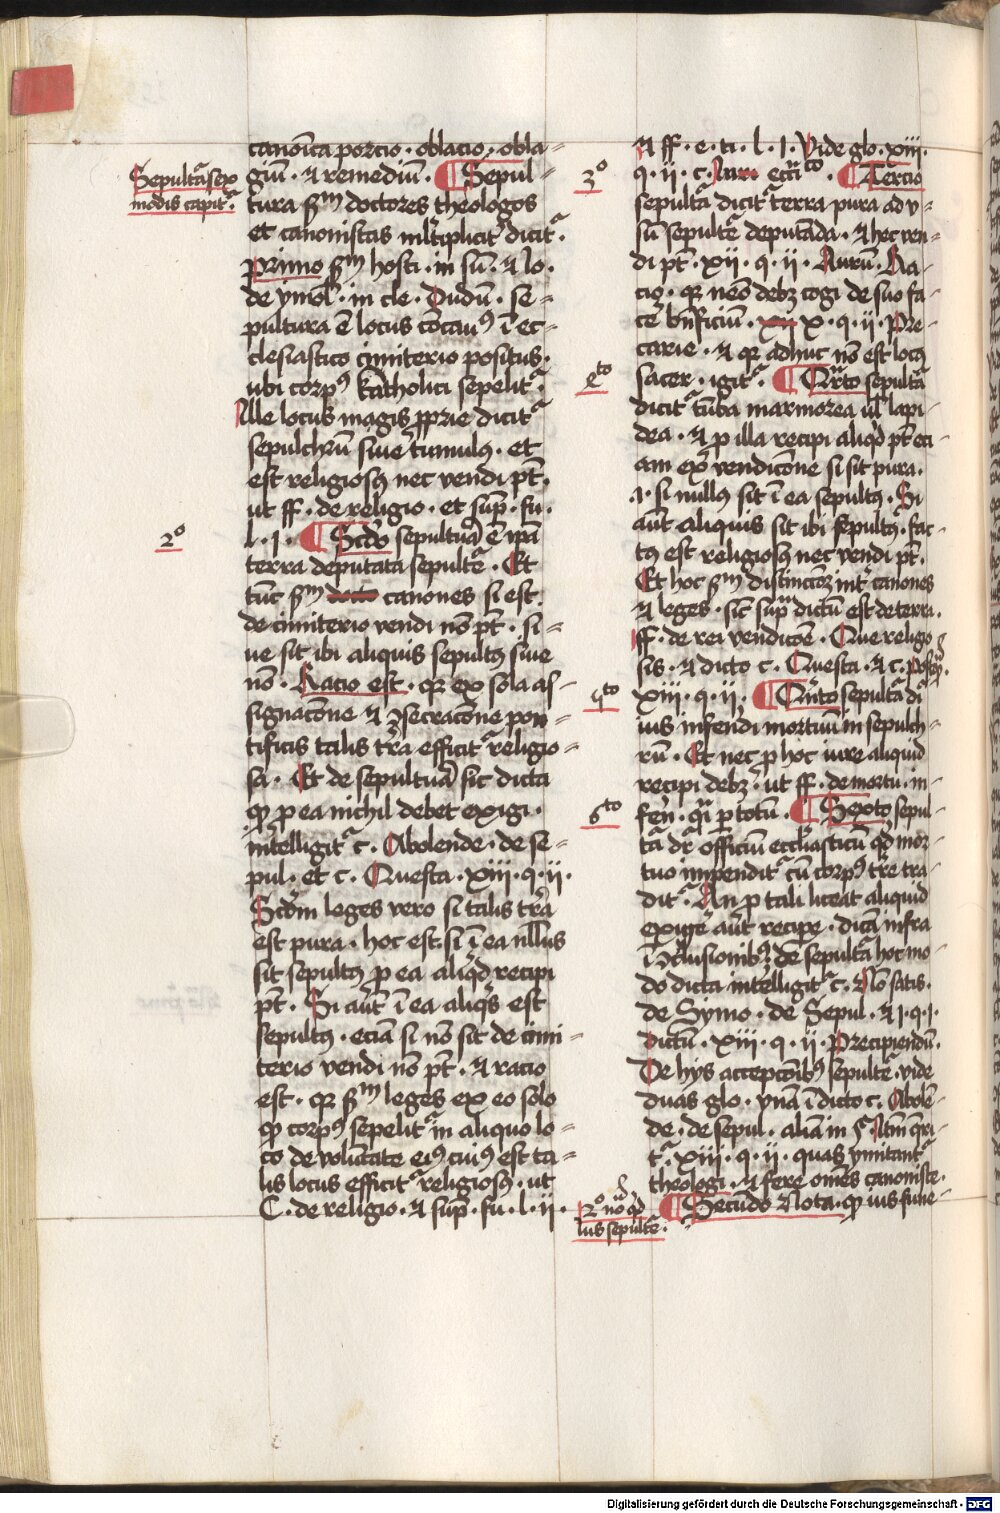 canonica porcio · oblacio · obla=
giu̅ · ⁊ remediu̅ · ¶ Sepul=
Sepult̾a sex
modis capit̾
tura sm doctores theologos
et canonistas ml̾tiplicit̾ dicit̾ ·
Primo sm hosti · in su̅ · ⁊ lo ·
de ymol̾ · in cle · Dudu̅ · se=
pultura e̅ locus co̅cauꝰ i̅ ec=
clesiastico cimiterio positus ·
ubi corpꝰ katholici sepelit̾
Ille locus magis ꝓprie dicit̾
sepulchru̅ siue tumulꝰ · et
est religiosꝰ nec vendi pt̅ ·
ut ff · de religio · et sup̅ · fu ·
l · i · ¶ Scd̾o sepultura e̅ ip̅a
2o
terra deputata sepult̾e · Et
tu̅c sm canones si est
de cimiterio vendi no̅ pt̅ · si=
ue sit ibi aliquis sepultꝰ siue
no̅ · Racio est · qr ex sola as=
signaco̅ne ⁊ ꝯsecraco̅ne pon=
tificis talis t̾ra efficit̾ religio=
sa · Et de sepultura sic dicta
ꝙ p ea nichil debet exigi ·
intelligit̾ c · Abolende · de se=
pul · et c · Questa · xiii · q · ii ·
Scd̾m leges vero si talis t̾ra
est pura · hoc est si i̅ ea nll̅us
sit sepultꝰ p ea aliqd recipi
pt̅ · Si au̅t i̅ ea aliqs est
sepultꝰ · ecia̅ si no̅ sit de cimi=
terio vendi no̅ pt̅ · ⁊ racio
est · qr sm leges ex eo solo
ꝙ corpꝰ sepelit̾ in aliquo lo=
co de volu̅tate eiꝰ cuiꝰ est ta=
lis locus efficit̾ religiosꝰ · ut
C · de religio · ⁊ sup̅ · fu · l · ii ·
⁊ ff · e · ti · l · i · Vide glo · xiii ·
q · ii · c · ¶ Tercio
3o
sepult̾a dicit̾ terra pura ad v=
su̅ sepult̾e deputa̅da · ⁊ hec ven=
di pt̅ · xii · q · ii · Auru̅ · Ra=
cio · qr nemo debꝫ cogi de suo fa=
ce̾ bn̅ficiu̅ · x · q · ii · Pre=
carie · ⁊ qr adhuc no̅ est locꝰ
sacer · igit̾ · ¶ Qr̾to sepult̾a
4to
dicit̾ tu̅ba marmorea ul̾ lapi=
dea · ⁊ p illa recipi aliqd pt̅ eci=
am ex vendico̅ne si sit pura ·
i · si nullꝰ sit i̅ ea sepultꝰ · Si
au̅t aliquis sit ibi sepultꝰ · fac=
tꝰ est religiosꝰ nec vendi pt̅ ·
Et hoc sm distinccoꝫ int̾ canones
⁊ leges · sic sup̾ dictu̅ est de terra ·
ff · de rei vendico̅e · Que religio
sis · ⁊ dicto c · Questa · ⁊ c · Postqꝫ ·
xiii · q · ii · ¶ Qui̅to sepult̾a d̾r
5to
ius infendi mortuu̅ in sepulch=
ru̅ · Et nec p hoc iure aliquid
recipi debꝫ · ut ff · de mortu · in=
fen̅ · qi̅ p totu̅ · ¶ Sexto sepul=
6to
t̾a d̾r officiu̅ eccl̾iasticu̅ qd mor=
tuo impendit̾ cu̅ corpꝰ t̾re tra=
dit̾ · An p tali liceat aliquid
exige̾ aut recipe̾ · dica̅ infra
i̅ ꝯclusionibꝫ de sepult̾a hoc mo=
do dicta intelligit̾ c · No̅ satis ·
de Symo · de Sepul · ⁊ i · q · i ·
Dictu̅ · xiii · q · ii · Precipiendu̅ ·
De hys accepco̅ibꝰ sepult̾e · vide
duas glo · vna̅ i̅ dicto c · Abole̅=
de · de sepul · alia̅ in § · Ite̅ q̅ri=
t̾ · xiii · q · ii · quas ymitant̾
theologi · ⁊ fere om̅es canoniste ·
¶ Secundo Nota · ꝙ ius fune=
2o no̅d qd
ius sepult̾e ·
Digitalisierung gefördert durch die Deutsche Forschungsgemeinschaft · DFG